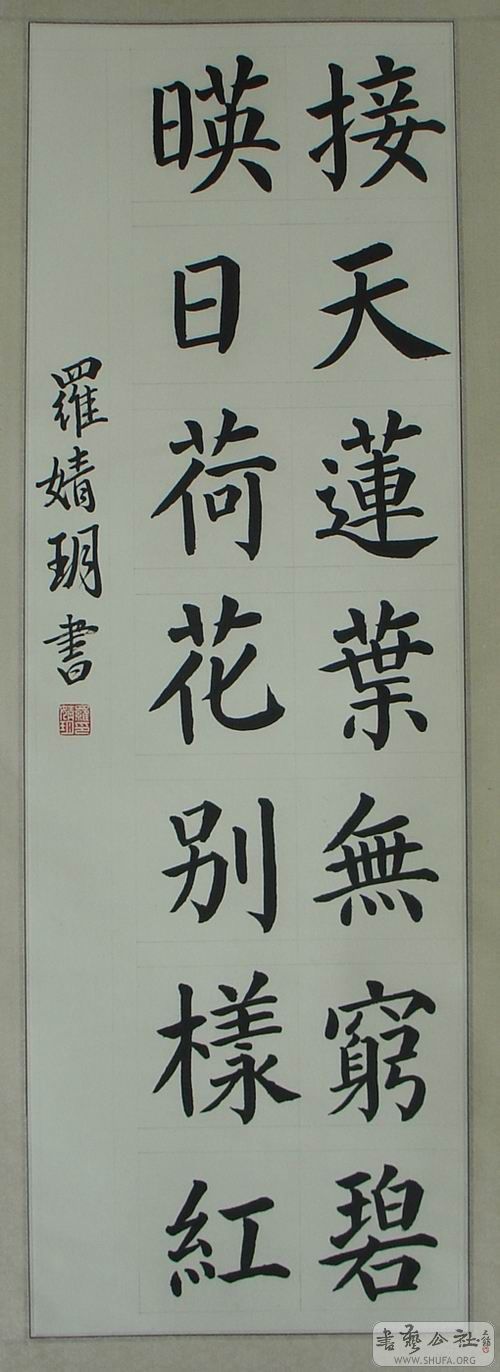 接天蓮葉無窮碧
暎日荷花别樣紅
羅婧玥書
書藝公社
WWW.SHUFA.ORG